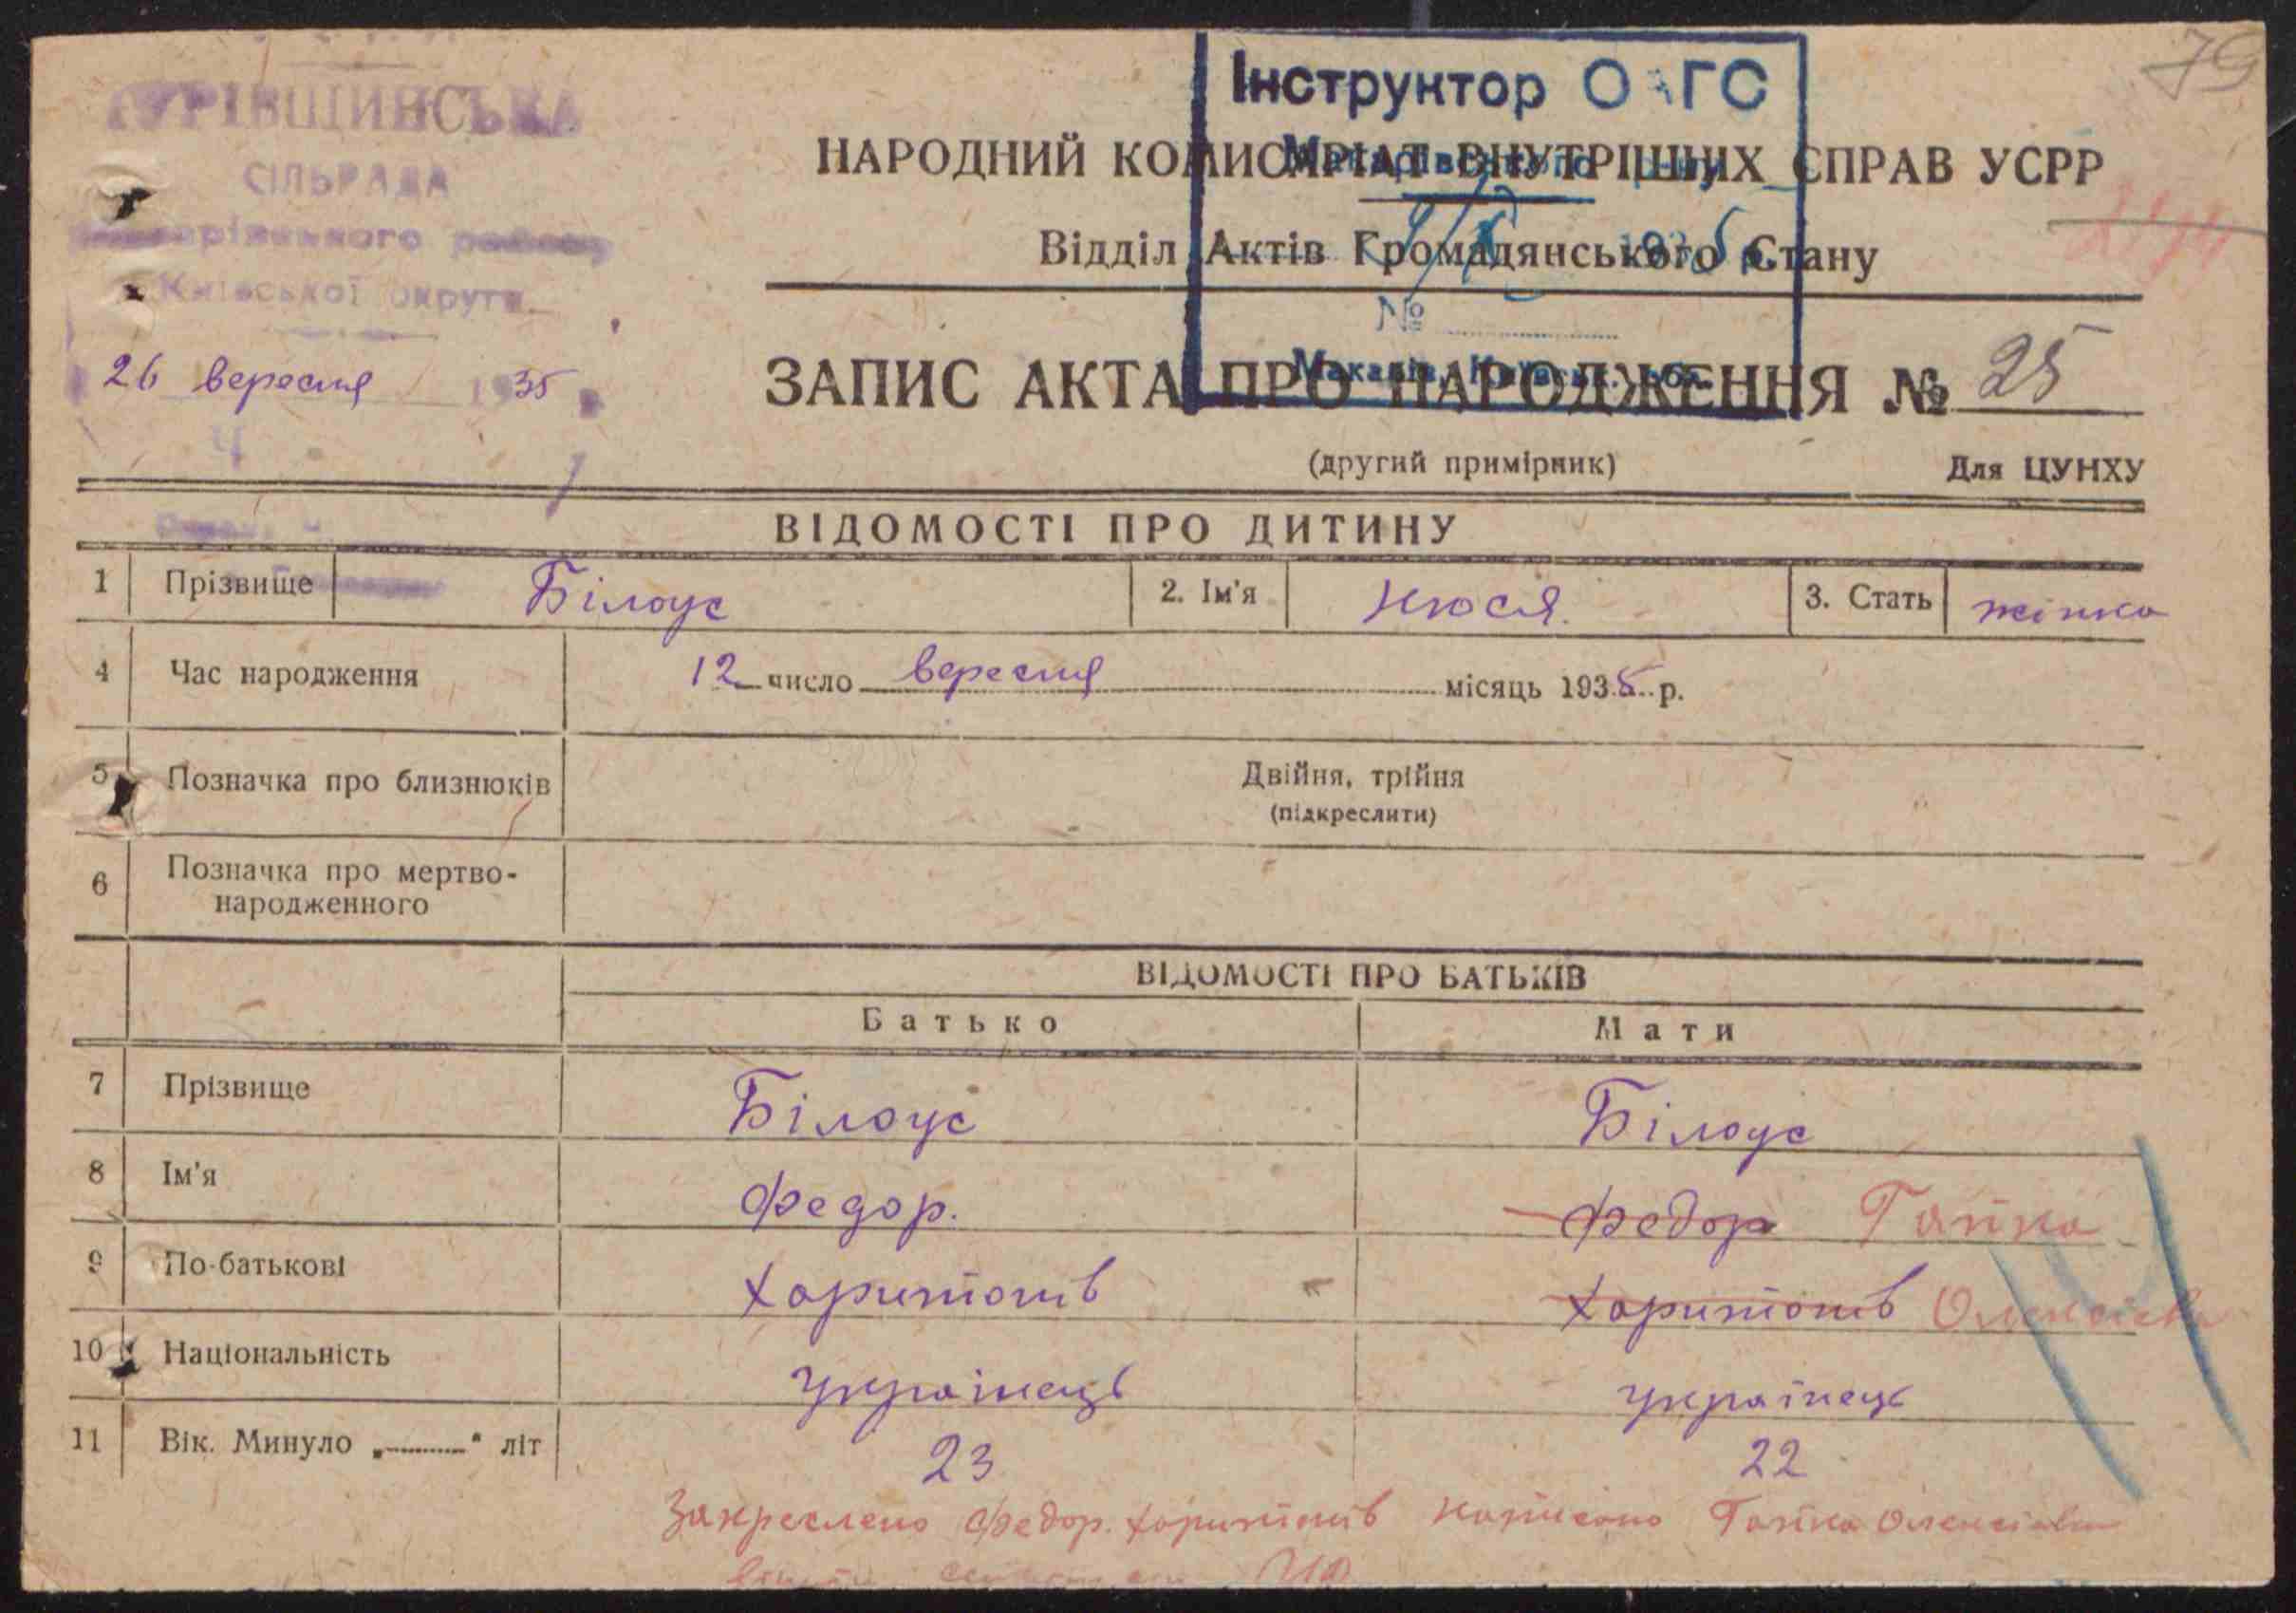 79
ГУРІВЩИНСЬКА
СІЛЬРАДА
району
Київської округи
26 вересня 1935 р.
Інструктор О ГС
№
Макарів, Київськ. обл.
НАРОДНИЙ КОМІСАРІАТ ВНУТРІШНІХ СПРАВ УСРР
Відділ Актів Громадянського Стану
ЗАПИС АКТА ПРО НАРОДЖЕННЯ № 25
(другий примірник) Для ЦУНХУ
ВІДОМОСТІ ПРО ДИТИНУ
1 Прізвище Білоус 2. Ім'я Нюся. 3. Стать жінка
4 Час народження 12 число вересня місяць 1935 р.
5 Позначка про близнюків Двійня, трійня
(підкреслити)
6 Позначка про мертво-
народженного
ВІДОМОСТІ ПРО БАТЬКІВ
Батько Мати
7 Прізвище Білоус Білоус
8 Ім'я Федор. Федор Гапка
9 По-батькові Харитонів Харитонів Олексієва
10 Національність українець українець
11 Вік. Минуло „ “ літ 23 22
Закреслено Федор. Харитонів написано Гапка